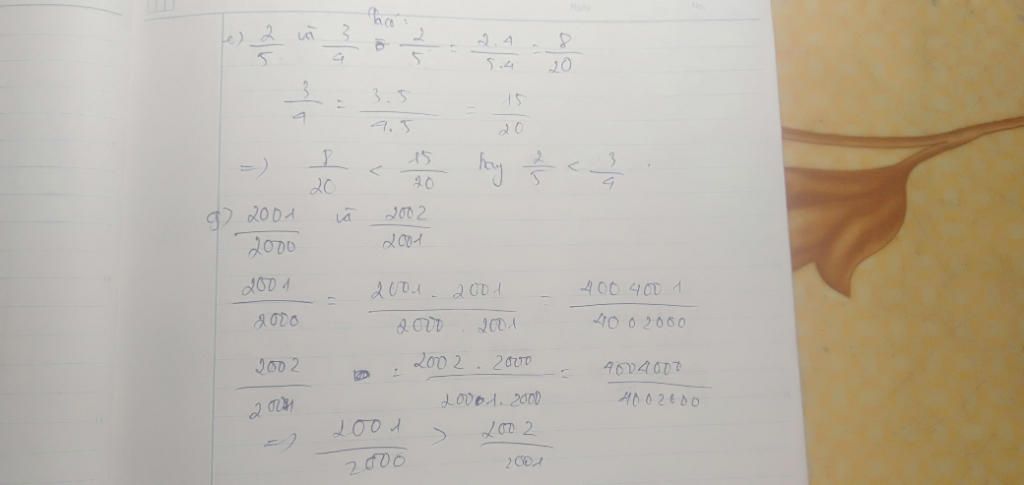 Ta có:
e) 2/5 và 3/4 2/5 = 2.4/5.4 = 8/20
3/4 = 3.5/4.5 = 15/20
=> 8/20 < 15/20 hay 2/5 < 3/4.
g) 2001/2000 và 2002/2001
2001/2000 = 2001.2001/2000.2001 = 4004001/4002000
2002/2001 = 2002.2000/2001.2000 = 4004000/4002000
=> 2001/2000 > 2002/2001